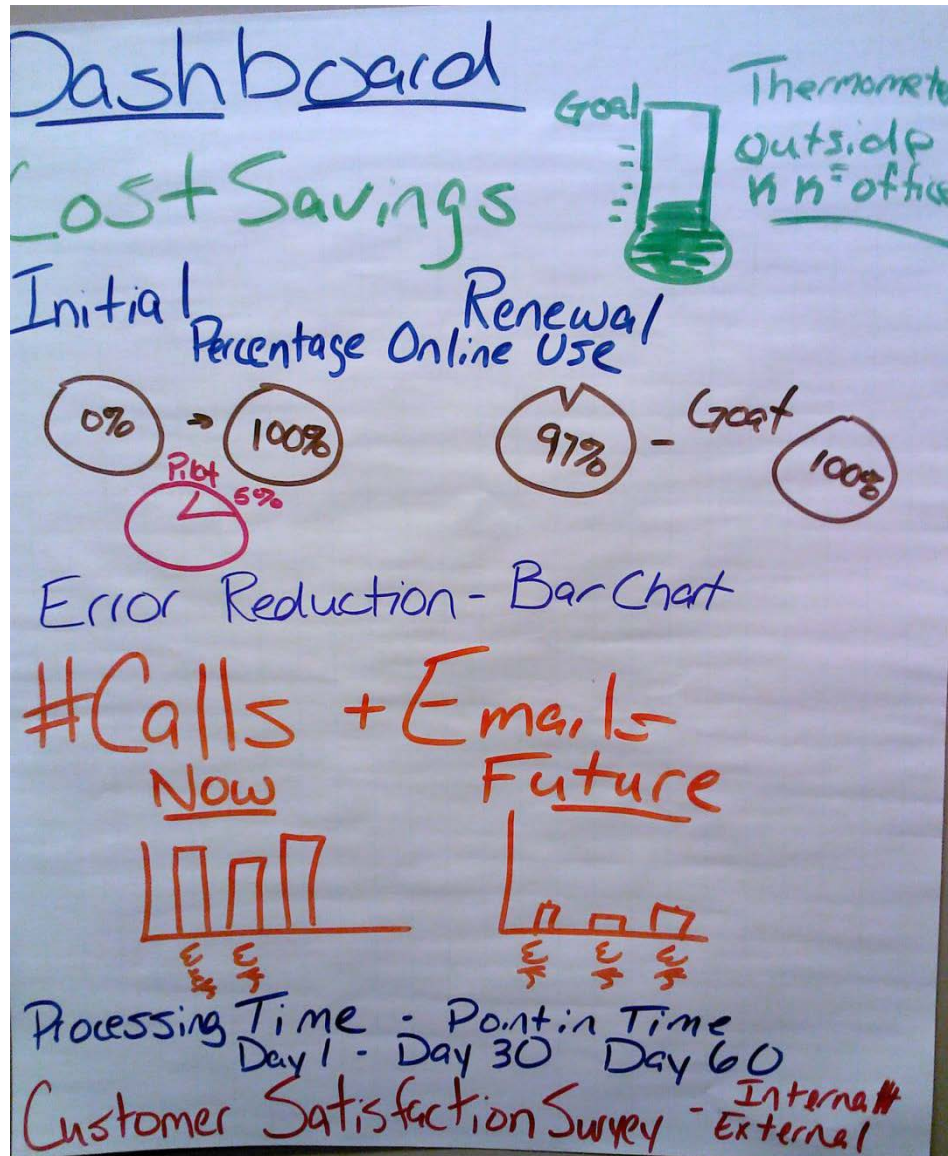 Dashboard
Goal
Thermomete
Outside
office
Cost Savings
Initial
Renewal
Percentage Online Use
0%
100%
97%
- Goal
100%
Pilot
5%
Error Reduction - Bar Chart
#Calls + Emails
Now
Future
Processing Time - Point in Time
Day 1 - Day 30 Day 60
Customer Satisfaction Survey - Internal
External